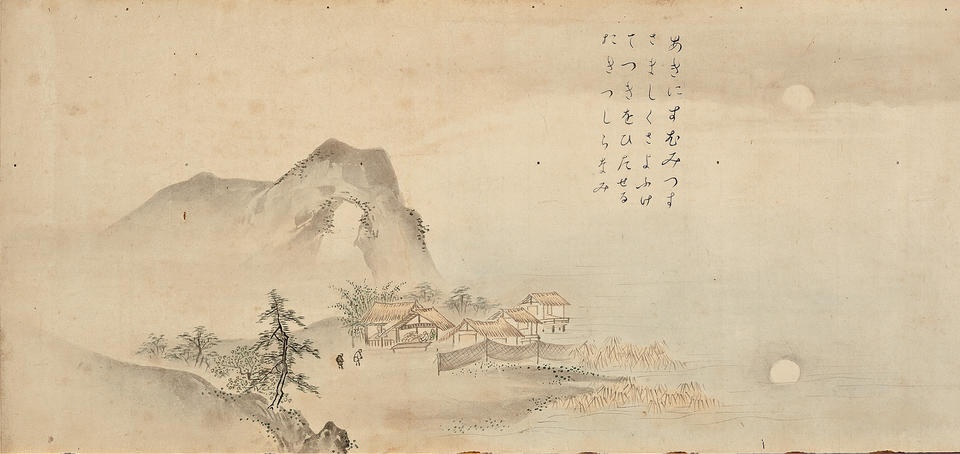 あきにすむみつす
さましくさよふけ
てつきをひたせる
たきつしらなみ